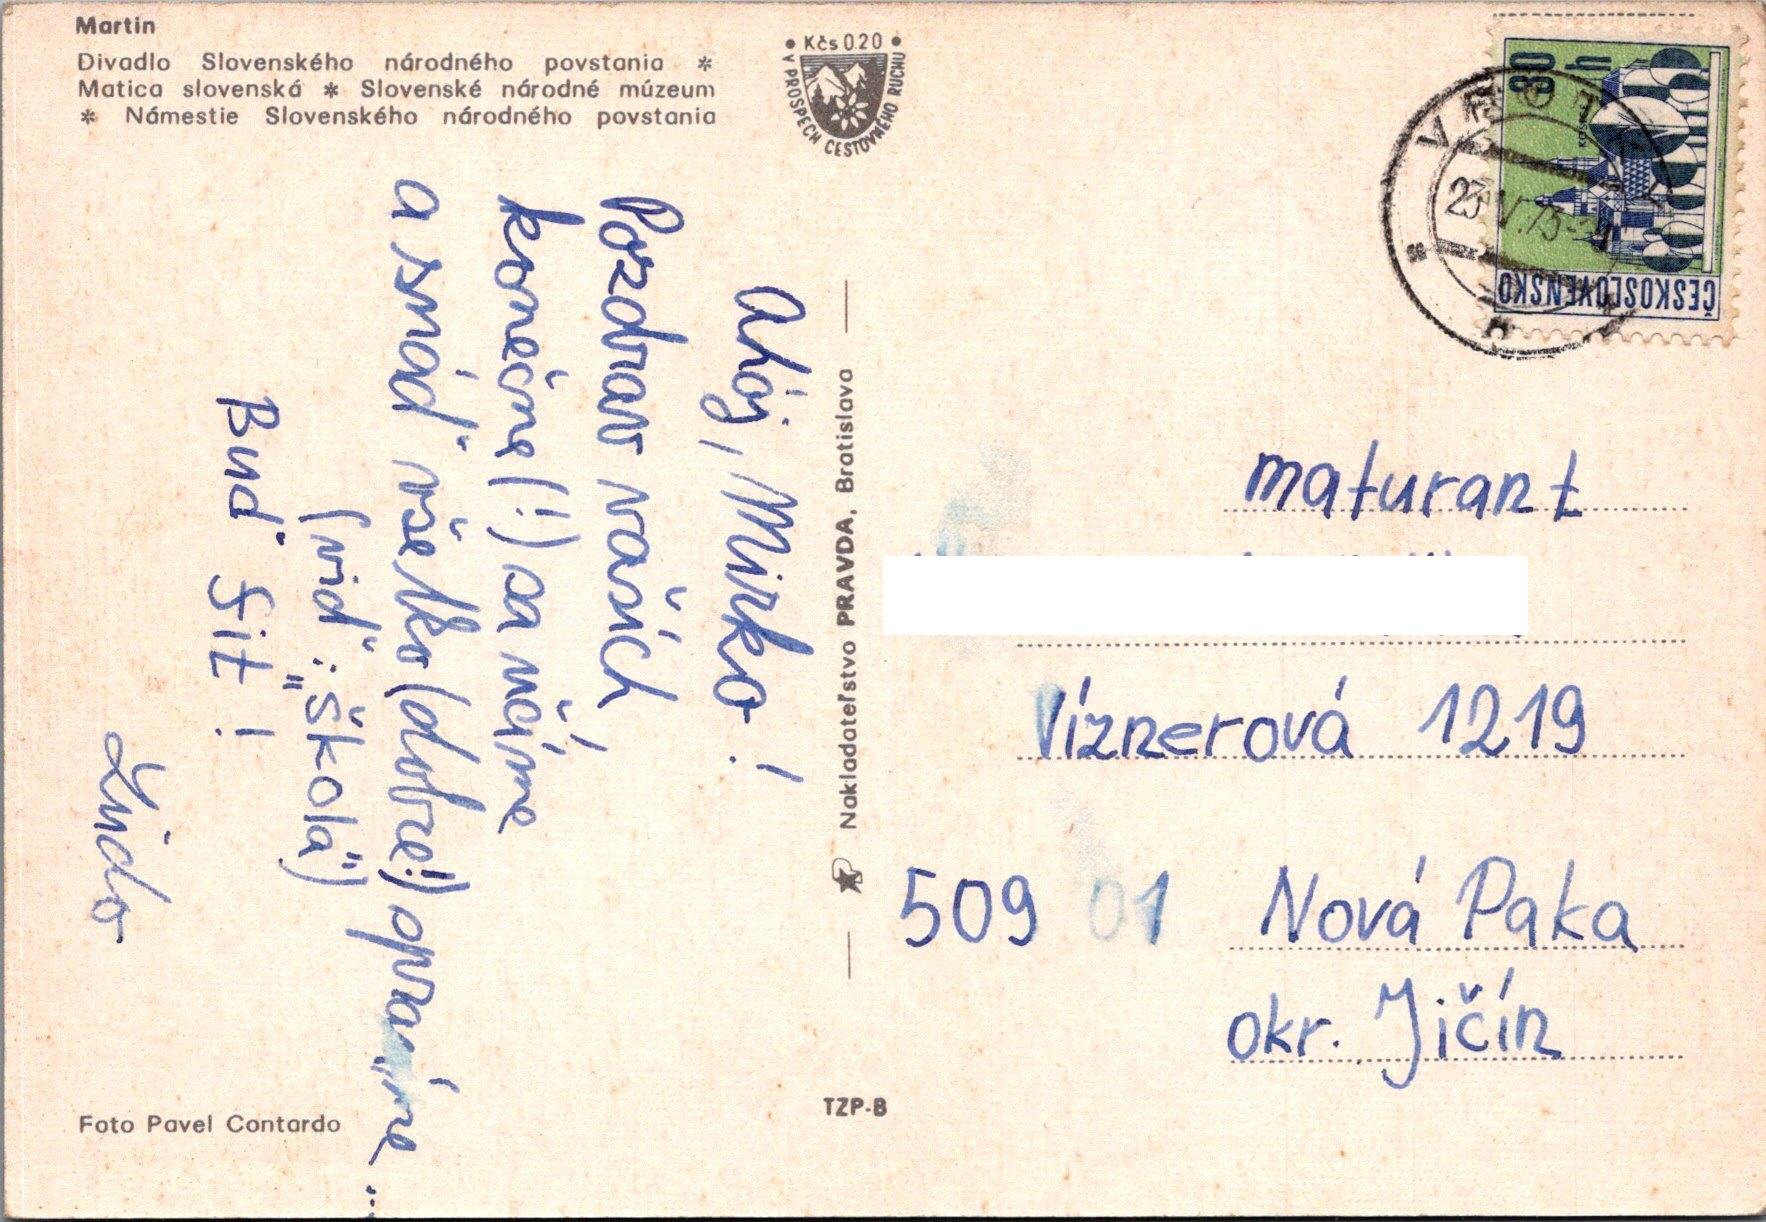 Martin
Divadlo Slovenského národného povstania *
Matica slovenská * Slovenské národné múzeum
* Námestie Slovenského národného povstania
• Kčs 0.20 •
V PROSPECH CESTOVNÉHO RUCHU
30 h
ČESKOSLOVENSKO
Ahoj, Mirko!
Pozdrav vašich
konečne (!) sa učíme
a snáď všetko (dobre!)
(viď: "škola")
Buď fit!
Ľudo
Nakladateľstvo PRAVDA, Bratislava
maturant
Víznerová 1219
509 01 Nová Paka
okr. Jičín
TZP-8
Foto Pavel Contardo